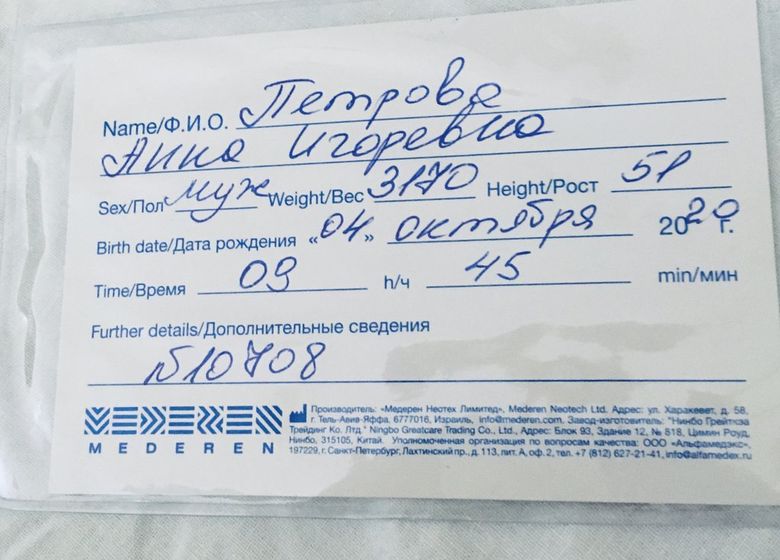 Name/Ф.И.О. Петрова
Анна Игоревна
Sex/Пол муж Weight/Вес 3170 Height/Рост 51
Birth date/Дата рождения «04» октября 2020 г.
Time/Время 09 h/ч 45 min/мин
Further details/Дополнительные сведения
№10708
MEDEREN
Производитель: «Медерен Неотех Лимитед», Mederen Neotech Ltd. Адрес: ул. Харакевет, д. 58,
г. Тель-Авив-Яффа, 6777016, Израиль, info@mederen.com. Завод-изготовитель: "Нинбо Грейтчэа
Трейдинг Ко. Лтд." Ningbo Greatcare Trading Co., Ltd., Адрес: Блок 93, Здание 12, № 818, Цимин Роуд,
Нинбо, 315105, Китай. Уполномоченная организация по вопросам качества: ООО «Альфамедэкс»,
197229, г. Санкт-Петербург, Лахтинский пр., д. 113, лит. А, оф. 2, тел. +7 (812) 627-21-41, info@alfamedex.ru